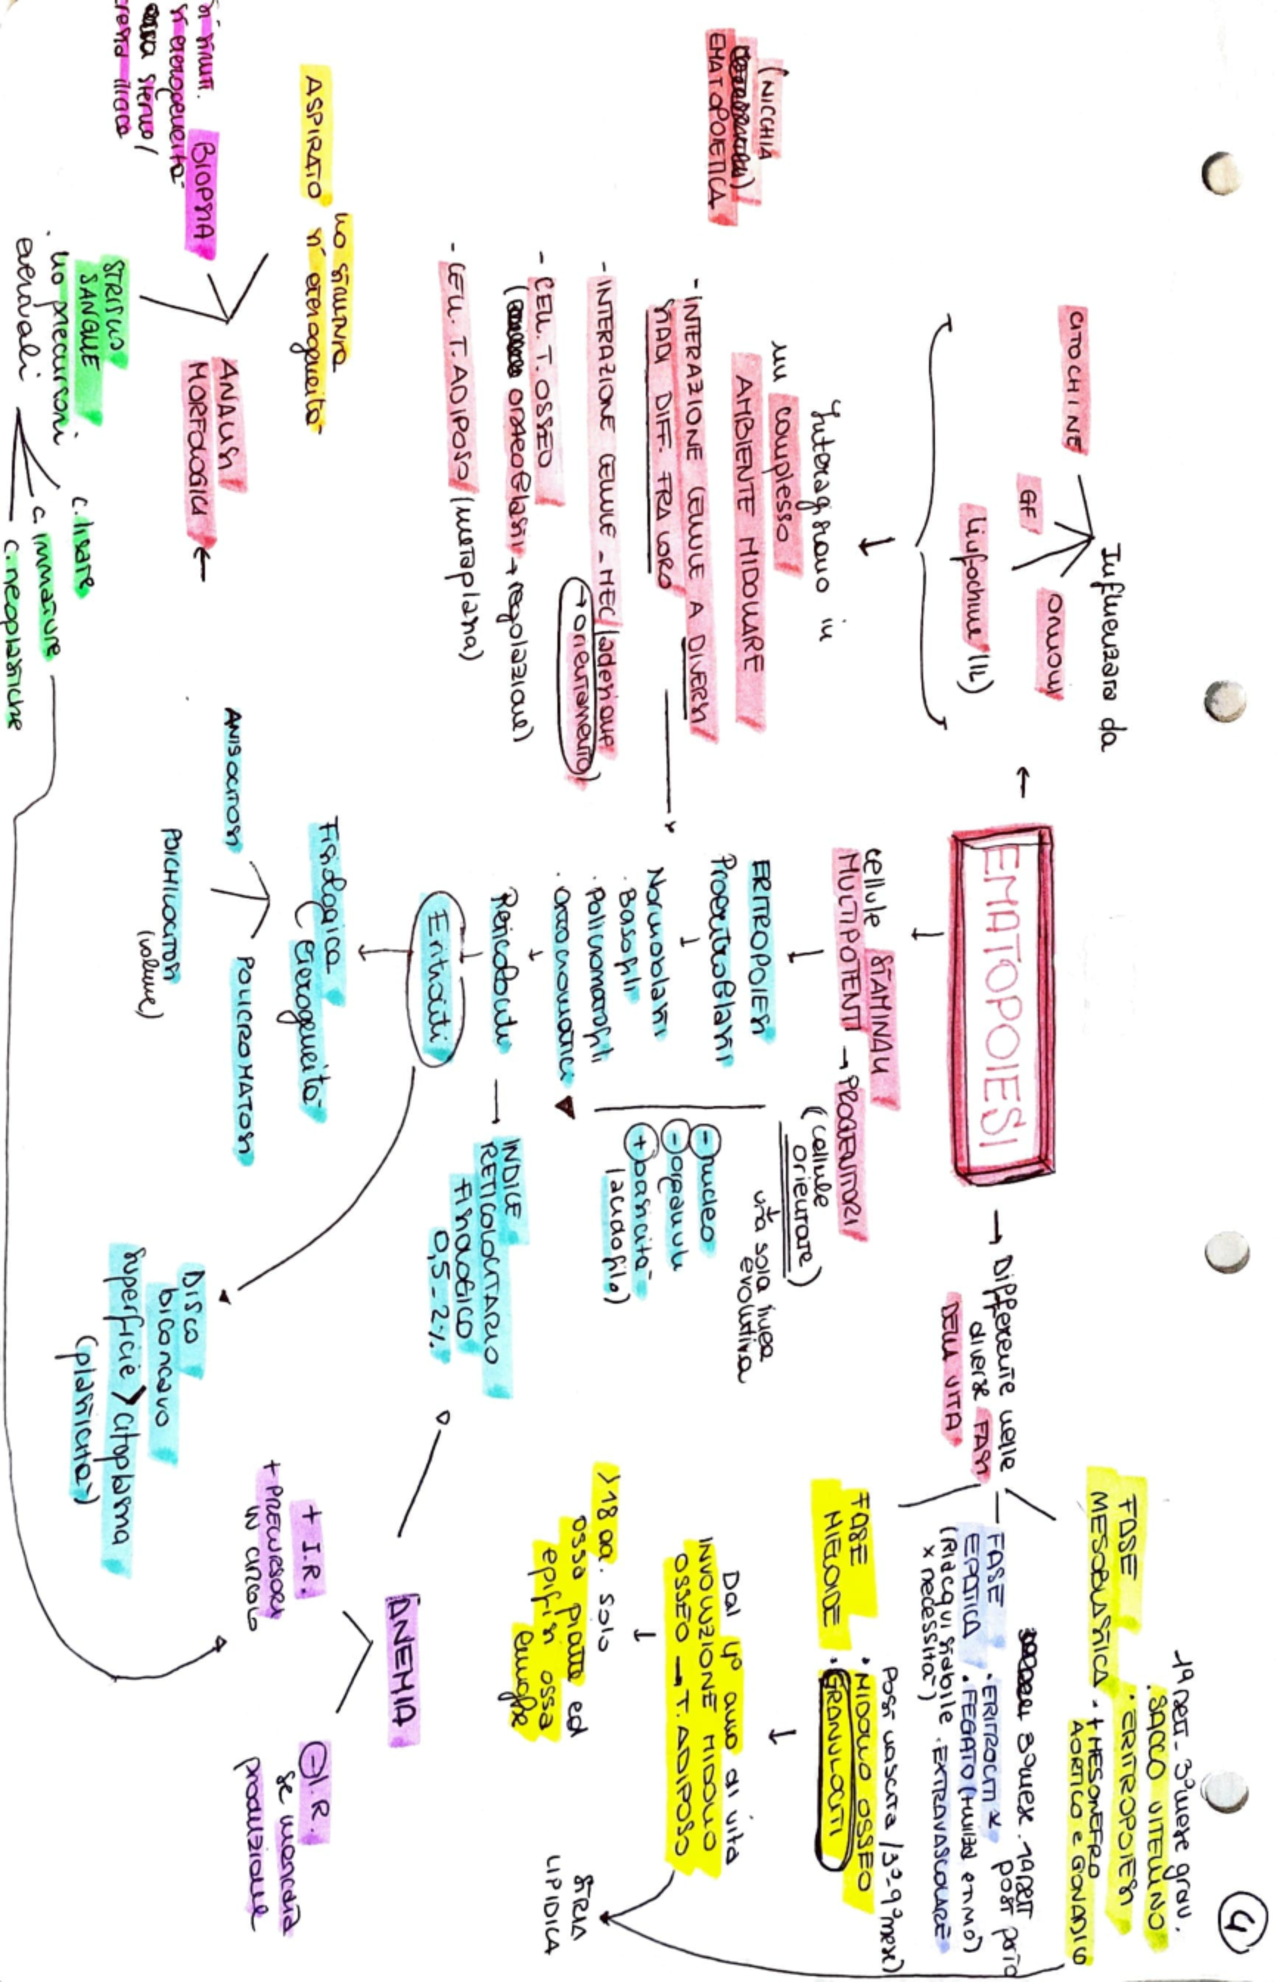 4
EMATOPOIESI
Influenzata da
CITOCHINE
GF
ormoni
linfochine (IL)
Interagiscono in
un complesso
AMBIENTE MIDOLLARE
- INTERAZIONE CELLULE A DIVERSI
STADI DIFF. FRA LORO
- INTERAZIONE CELLULE - MEC (adesione
→ orientamento)
- CELL. T. OSSEO
( osteoblasti → regolazione)
- CELL. T. ADIPOSO (metaplasia)
(NICCHIA
EMATOPOIETICA
→ Differente nelle
diverse FASI
DELLA VITA
FASE
MESOBLASTICA
1ª sett - 3° mese grav.
· SACCO VITELLINO
· ERITROPOIESI
· + MESONEFRO
AORTICO e GONADICO
FASE
EPATICA
(Riacquisibile
x necessità)
3° mese - 1ª sett
post parto
· ERITROCITI x
· FEGATO (+ milza e timo)
· EXTRAVASCOLARE
FASE
MIELOIDE
Post nascita (5°-9° mese)
· MIDOLLO OSSEO
· GRANULOCITI
Dal 4° anno di vita
INVOLUZIONE MIDOLLO
OSSEO → T. ADIPOSO
STRIA
LIPIDICA
> 18 aa. solo
ossa piatte ed
epifisi ossa
lunghe
cellule STAMINALI
MULTIPOTENTI → PROGENITORI
(cellule
orientate)
una sola linea
evolutiva
ERITROPOIESI
Proeritroblasti
Normoblasti
· Basofili
· Policromatofili
· Ortocromatici
- nucleo
- organuli
+ basicità
(acidofilo)
Reticolociti → INDICE
RETICOLOCITARIO
FISIOLOGICO
0,5 - 2%
Eritrociti
Fisiologica
eterogeneità
ANISOCITOSI
POICHILOCITOSI
(volume)
POLICROMATOSI
DISCO
biconcavo
superficie > citoplasma
(plasticità)
ANEMIA
+ I.R.
+ PRECURSORI
IN CIRCOLO
- I.R.
se mancata
produzione
ANALISI
MORFOLOGICI
ASPIRATO
no struttura
sì eterogeneità
BIOPSIA
sì strutt.
sì eterogeneità
sterno/
cresta iliaca
STRISCIO
SANGUE
· no precursori
eventuali
c. lisate
c. immature
c. neoplastiche